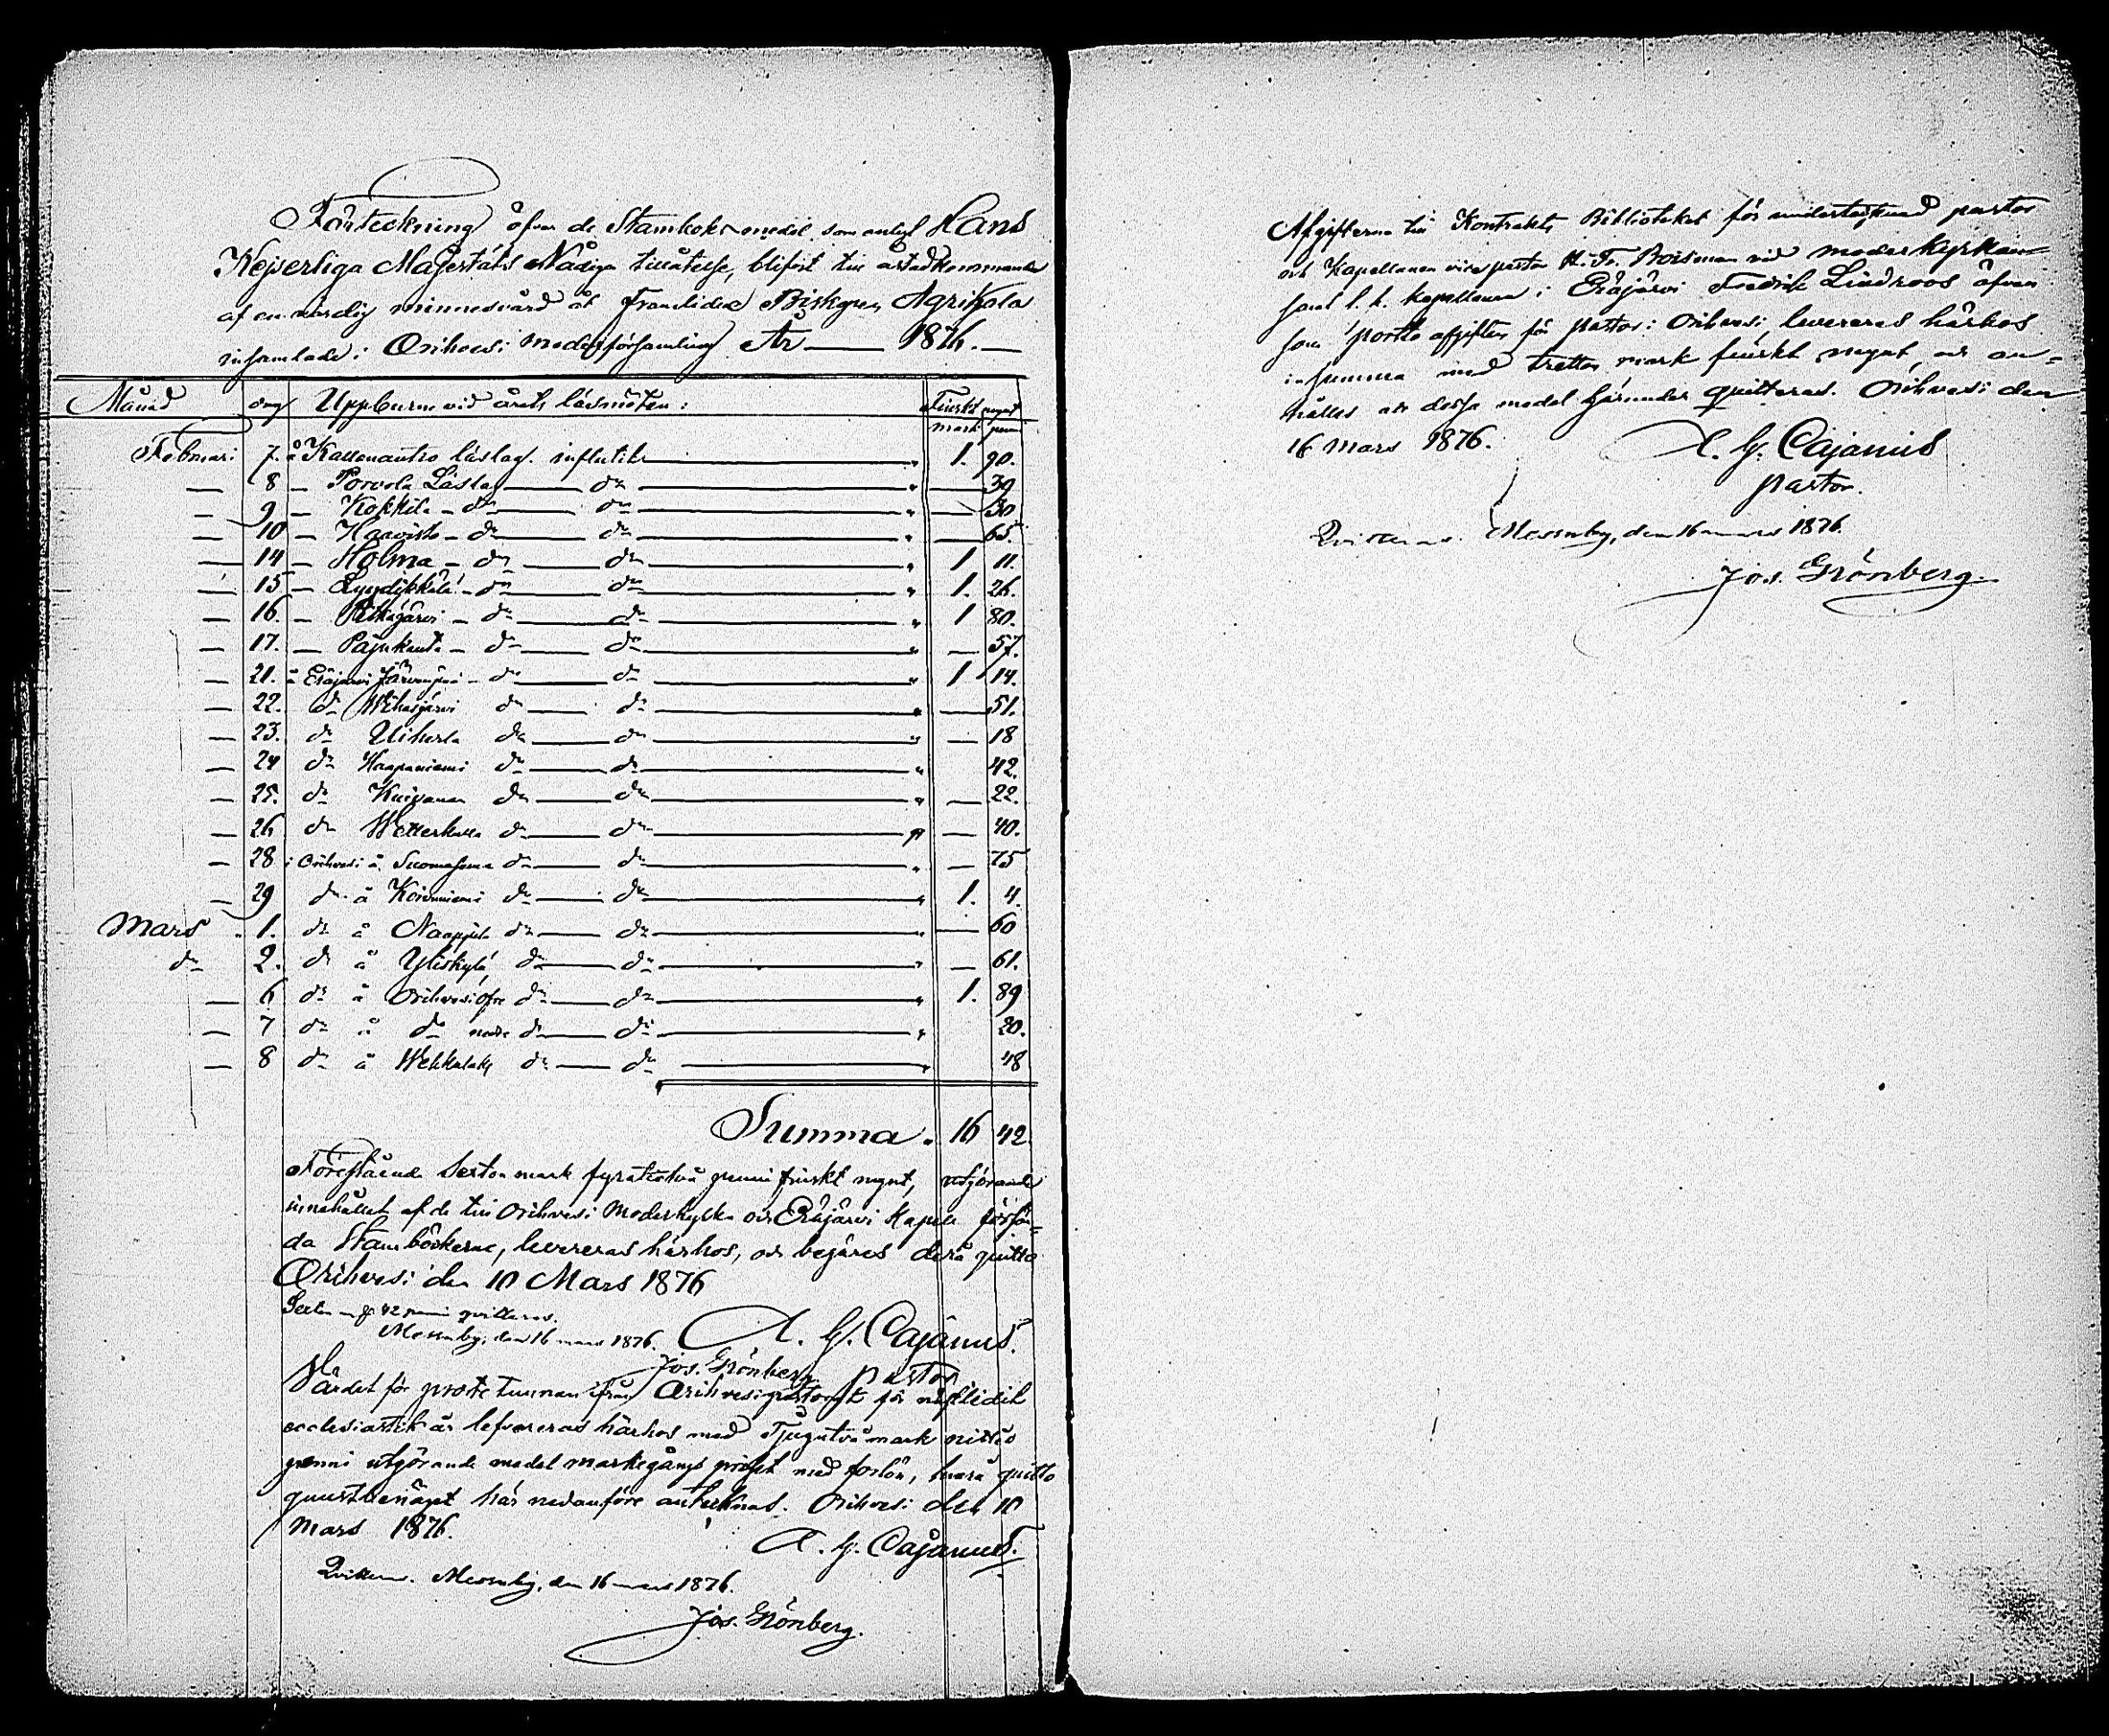 Förteckning öfver de Stamboks medel som enligt Hans
Kejserliga Majestäts Nådiga tillåtelse, blifvit till åstadkommande
af en värdig minnesvård åt framlidne Biskopen Agrikola
insamlade i Orihvesi moderförsamling År — 1876.
Månad dag Uppburne vid årets läsmöten: Finskt mynt
mark penni
Februari 7. å Kallenautio läslag. influtit — " 1. 90.
— 8 — Porvola Läslag — do — " — 39
— 9 — Kokkila — do — do — " — 30
— 10 — Haavisto — do — do — " — 65.
— 14 — Holma — do — do — " 1 11.
— 15 — Lyydikkälä — do — do — " 1. 26.
— 16. — Pitkäjärvi — do — do — " 1 80.
— 17. — Pajukanta — do — do — " — 57.
— 21. i Eräjärvi Järvenpää — do — do — " 1 14.
— 22. do Wihasjärvi do — do — " — 51.
— 23. do Uiherla do — do — " — 18
— 24 do Haapaniemi do — do — " 42.
— 25. do Kuivanen do — do — " — 22.
— 26 do Wetterkulla do — do — " — 40.
— 28 i Orihvesi å Suomasema do — do — " — 75
— 29 do å Koivuniemi do — do — " 1. 4.
Mars . 1. do å Naappila do — do — " — 60
do 2. do å Yliskylä do — do — " — 61.
— 6 do å Orihvesi öfre do — do — " 1. 89
— 7 do å do nedre do — do — " 20.
— 8 do å Wehkalaks do — do — " 48
Summa . 16 42
Föreslående Sexton mark fyratiotvå penni finskt mynt, utgörande
innehållet af de till Orihvesi Moderkyrka och Eräjärvi Kapell försän-
da Stamböckerne, levereras härhos, och begäres derå quitto
Orihvesi den 10 Mars 1876
Sexton mk 42 penni quitteras.
Messuby, den 16 mars 1876. A. G. Cajanus.
Jos. Grönberg. pastor
Värdet för prost tunnan ifrån Orihvesi pastorat för nästlidit
ecclesiastik år lefvereras härhos med Tjugutvå mark nittio
penni utgörande medel markegångs priset med forlön, hvarå quitto
gunstbenäget här nedanföre antecknas. Orihvesi den 10
Mars 1876.
A. G. Cajanus.
Qvitteras. Messuby, den 16 mars 1876.
Jos. Grönberg.
Afgifterna till Kontrakts Biblioteket för undertecknad pastor
och Kapellanen vice pastor K. Fr. Boisman vid moderkyrkan
samt t. f. kapellanen i Eräjärvi Fredrik Lindroos äfven
som portto afgiften för pastor i Orihvesi, levereras härhos
in summa med tretton mark finskt mynt, och an-
hålles att dessa medel härunder quitteras. Orihvesi den
16 Mars 1876.
A. G. Cajanus
pastor.
Qvitteras. Messuby, den 16 mars 1876.
Jos. Grönberg.